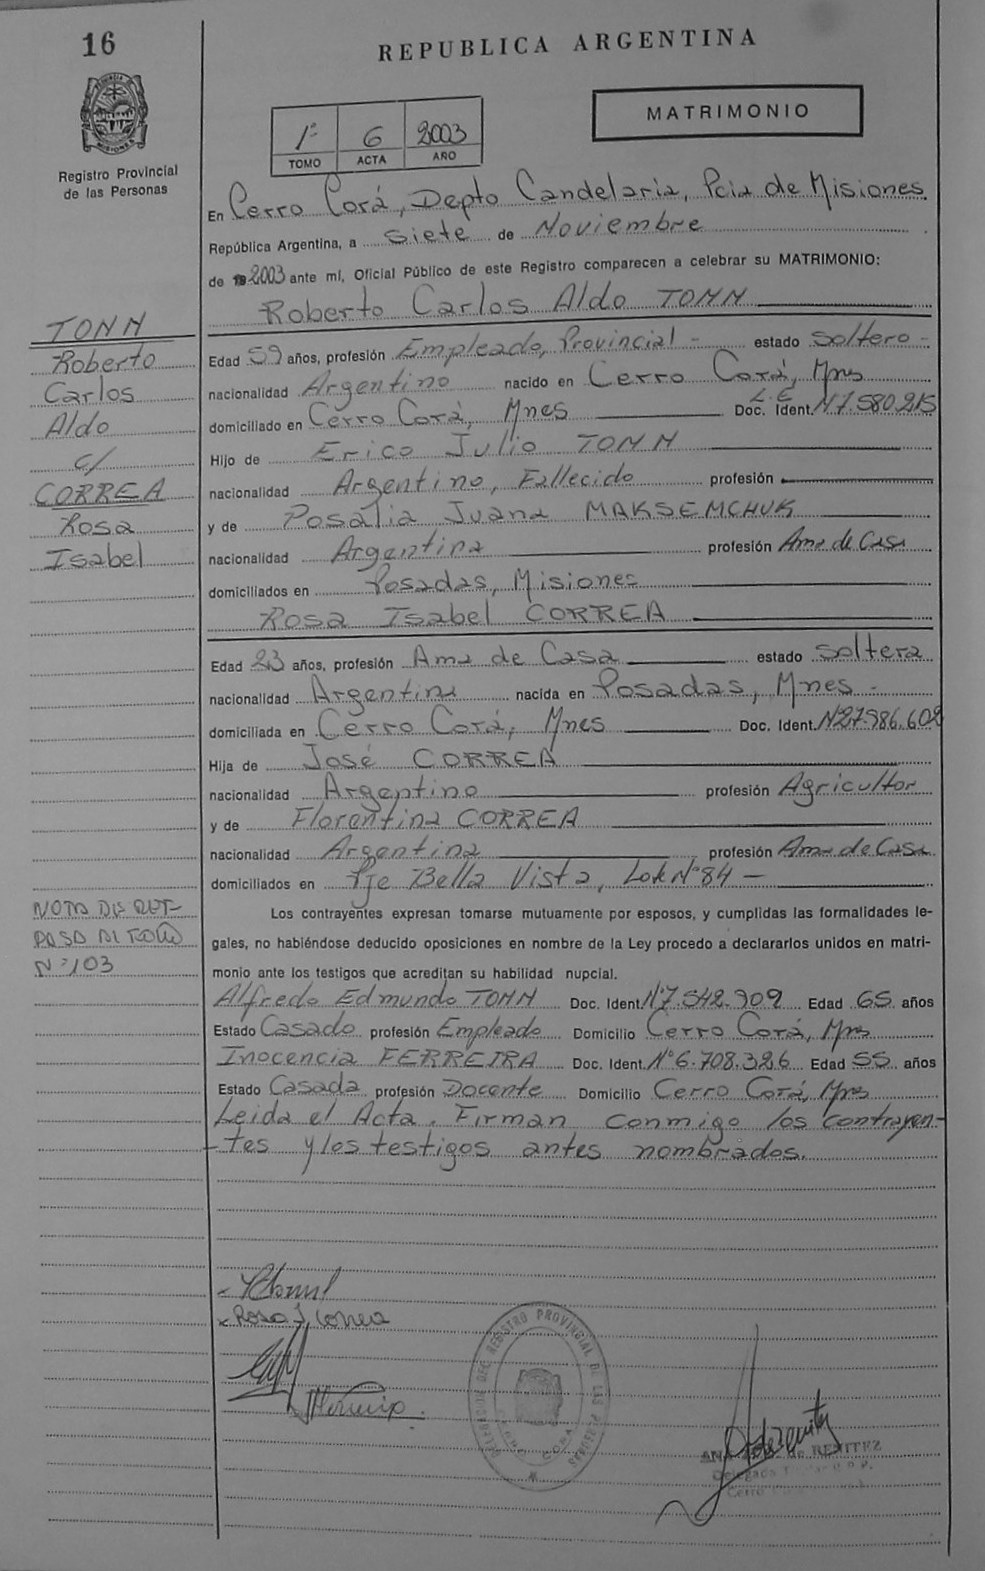 16
REPUBLICA ARGENTINA
MATRIMONIO
1º 6 2003
TOMO ACTA AÑO
Registro Provincial
de las Personas
En Cerro Corá, Depto Candelaria, Pcia de Misiones
República Argentina, a siete de Noviembre
de 2003 ante mí, Oficial Público de este Registro comparecen a celebrar su MATRIMONIO:
Roberto Carlos Aldo TONN
TONN
Roberto
Carlos
Aldo
c/
CORREA
Rosa
Isabel
Edad 59 años, profesión Empleado, Provincial - estado soltero -
nacionalidad Argentino nacido en Cerro Corá, Mnes
L.E
domiciliado en Cerro Corá, Mnes Doc. Ident. N7.580.215
Hijo de Erico Julio TONN
nacionalidad Argentino, Fallecido profesión
y de Rosalia Juana MAKSEMCHUK
nacionalidad Argentina profesión Ama de Casa
domiciliados en Posadas, Misiones
Rosa Isabel CORREA
Edad 23 años, profesión Ama de Casa estado soltera
nacionalidad Argentina nacida en Posadas, Mnes -
domiciliada en Cerro Corá, Mnes Doc. Ident. N27.986.602
Hija de José CORREA
nacionalidad Argentino profesión Agricultor
y de Florentina CORREA
nacionalidad Argentina profesión Ama de Casa
domiciliados en Pje Bella Vista, Lote Nº 84 -
NOTA DE REF
PASO AL FOLIO
Nº 103
Los contrayentes expresan tomarse mutuamente por esposos, y cumplidas las formalidades le-
gales, no habiéndose deducido oposiciones en nombre de la Ley procedo a declararlos unidos en matri-
monio ante los testigos que acreditan su habilidad nupcial.
Alfredo Edmundo TONN Doc. Ident. Nº7.542.909 Edad 65 años
Estado Casado profesión Empleado Domicilio Cerro Corá, Mnes
Inocencia FERREIRA Doc. Ident. Nº6.708.326 Edad 55 años
Estado Casada profesión Docente Domicilio Cerro Corá, Mnes
Leida el Acta, Firman conmigo los contrayen-
-tes y los testigos antes nombrados.
Rosa I, Correa
DELEGACION DEL REGISTRO PROVINCIAL DE LAS PERSONAS
CERRO CORA
de BENITEZ
Delegada
Cerro